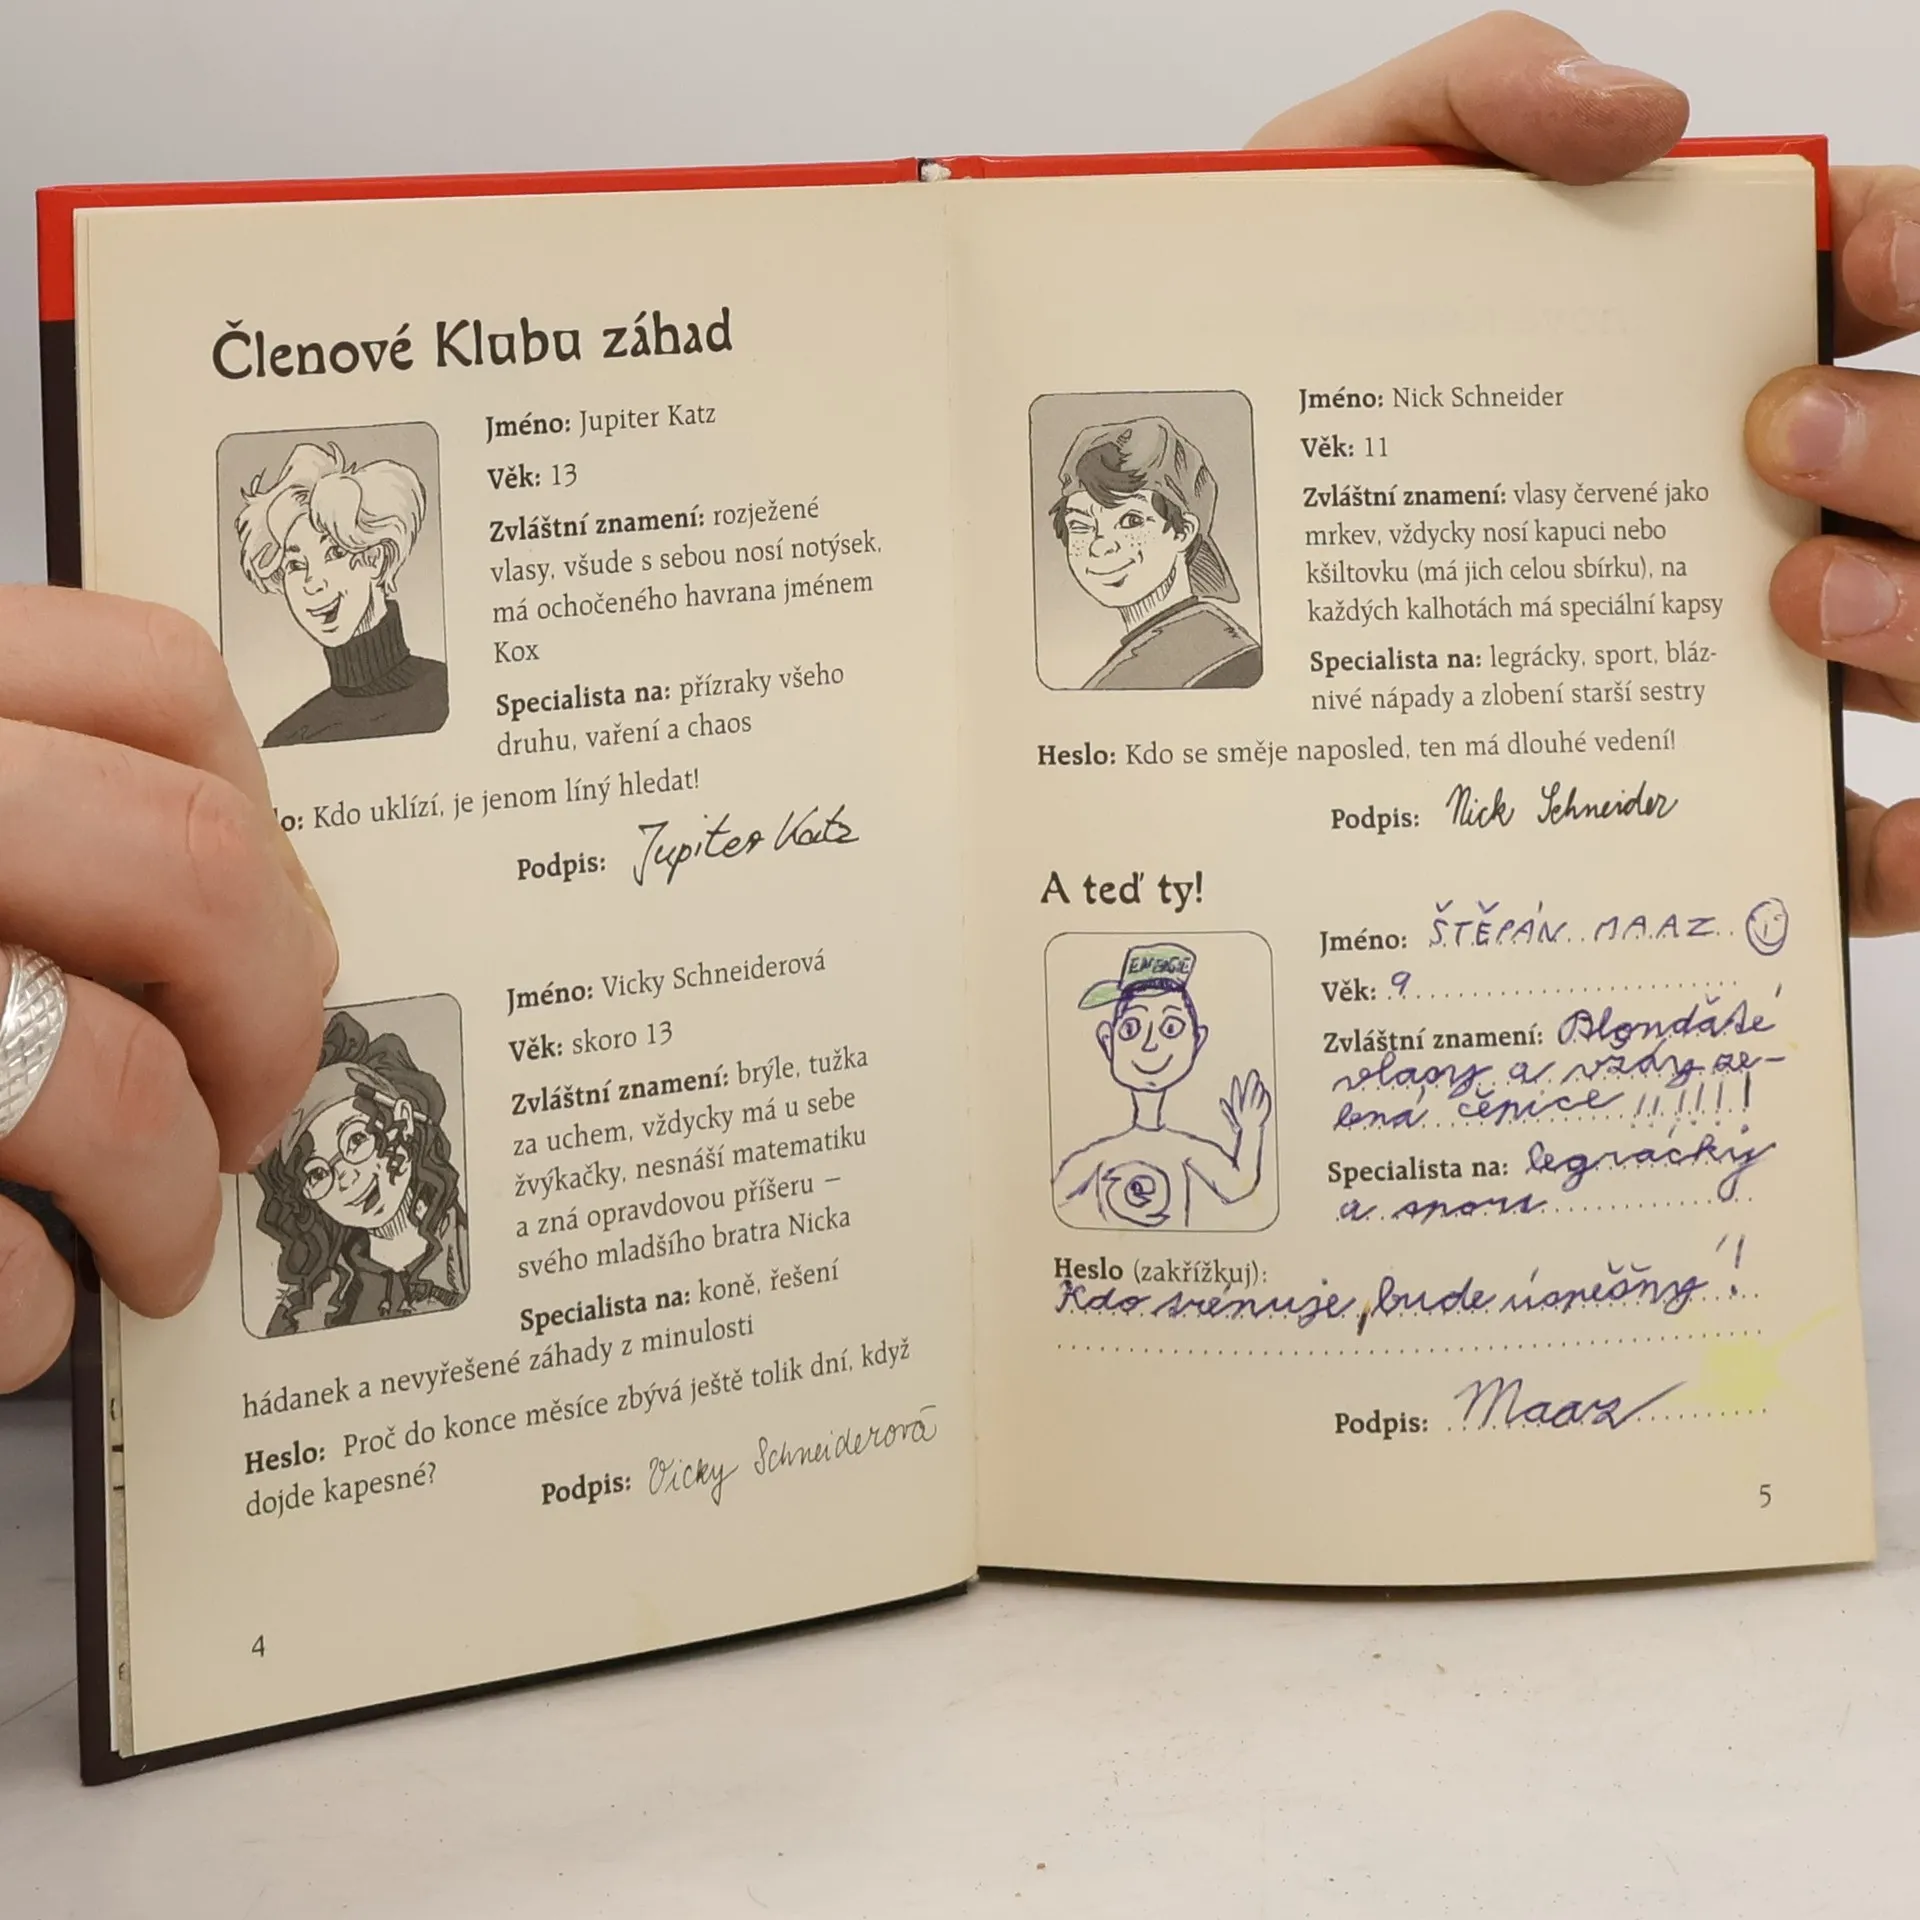 Členové Klubu záhad
Jméno: Jupiter Katz
Věk: 13
Zvláštní znamení: rozježené
vlasy, všude s sebou nosí notýsek,
má ochočeného havrana jménem
Kox
Specialista na: přízraky všeho
druhu, vaření a chaos
lo: Kdo uklízí, je jenom líný hledat!
Podpis: Jupiter Katz
Jméno: Vicky Schneiderová
Věk: skoro 13
Zvláštní znamení: brýle, tužka
za uchem, vždycky má u sebe
žvýkačky, nesnáší matematiku
a zná opravdovou příšeru –
svého mladšího bratra Nicka
Specialista na: koně, řešení
hádanek a nevyřešené záhady z minulosti
Heslo: Proč do konce měsíce zbývá ještě tolik dní, když
dojde kapesné?
Podpis: Vicky Schneiderová
4
Jméno: Nick Schneider
Věk: 11
Zvláštní znamení: vlasy červené jako
mrkev, vždycky nosí kapuci nebo
kšiltovku (má jich celou sbírku), na
každých kalhotách má speciální kapsy
Specialista na: legrácky, sport, bláz-
nivé nápady a zlobení starší sestry
Heslo: Kdo se směje naposled, ten má dlouhé vedení!
Podpis: Nick Schneider
A teď ty!
Jméno: ŠTĚPÁN MAAZ
Věk: 9
Zvláštní znamení: Blonďaté
vlasy a vždy ze-
lená čepice !!!!!!
Specialista na: legrácky
a sport
Heslo (zakřížkuj):
Kdo trénuje, bude úspěšný!
Podpis: Maaz
5